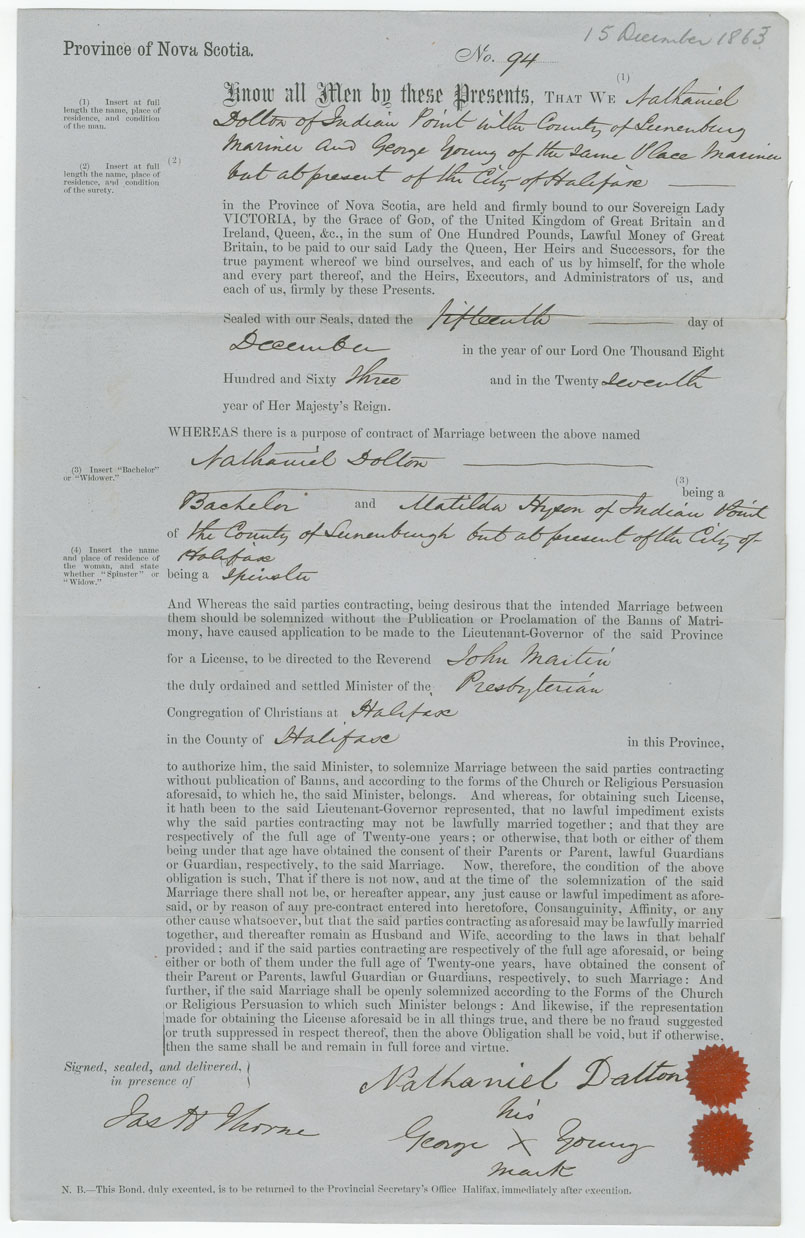 15 December 1863
Province of Nova Scotia.
No. 94
(1) Insert at full
length the name, place of
residence, and condition
of the man.
(1)
Know all Men by these Presents, THAT WE Nathaniel
Dolton of Indian Point in the County of Lunenburg
(2) Insert at full
length the name, place of
residence, and condition
of the surety.
(2)
Mariner and George Young of the same Place Mariner
but at present of the City of Halifax
in the Province of Nova Scotia, are held and firmly bound to our Sovereign Lady
VICTORIA, by the Grace of GOD, of the United Kingdom of Great Britain and
Ireland, Queen, &c., in the sum of One Hundred Pounds, Lawful Money of Great
Britain, to be paid to our said Lady the Queen, Her Heirs and Successors, for the
true payment whereof we bind ourselves, and each of us by himself, for the whole
and every part thereof, and the Heirs, Executors, and Administrators of us, and
each of us, firmly by these Presents.
Sealed with our Seals, dated the fifteenth day of
December in the year of our Lord One Thousand Eight
Hundred and Sixty three and in the Twenty seventh
year of Her Majesty's Reign.
WHEREAS there is a purpose of contract of Marriage between the above named
Nathaniel Dolton
(3) Insert "Bachelor"
or "Widower."
(3)
being a
Bachelor and Matilda Hyson of Indian Point
of the County of Lunenburgh but at present of the City of
Halifax
(4) Insert the name
and place of residence of
the woman, and state
whether "Spinster" or
"Widow."
being a Spinster
And Whereas the said parties contracting, being desirous that the intended Marriage between
them should be solemnized without the Publication or Proclamation of the Banns of Matri-
mony, have caused application to be made to the Lieutenant-Governor of the said Province
for a License, to be directed to the Reverend John Martin
the duly ordained and settled Minister of the Presbyterian
Congregation of Christians at Halifax
in the County of Halifax in this Province,
to authorize him, the said Minister, to solemnize Marriage between the said parties contracting
without publication of Banns, and according to the forms of the Church or Religious Persuasion
aforesaid, to which he, the said Minister, belongs. And whereas, for obtaining such License,
it hath been to the said Lieutenant-Governor represented, that no lawful impediment exists
why the said parties contracting may not be lawfully married together; and that they are
respectively of the full age of Twenty-one years; or otherwise, that both or either of them
being under that age have obtained the consent of their Parents or Parent, lawful Guardians
or Guardian, respectively, to the said Marriage. Now, therefore, the condition of the above
obligation is such, That if there is not now, and at the time of the solemnization of the said
Marriage there shall not be, or hereafter appear, any just cause or lawful impediment as afore-
said, or by reason of any pre-contract entered into heretofore, Consanguinity, Affinity, or any
other cause whatsoever, but that the said parties contracting as aforesaid may be lawfully married
together, and thereafter remain as Husband and Wife, according to the laws in that behalf
provided; and if the said parties contracting are respectively of the full age aforesaid, or being
either or both of them under the full age of Twenty-one years, have obtained the consent of
their Parent or Parents, lawful Guardian or Guardians, respectively, to such Marriage: And
further, if the said Marriage shall be openly solemnized according to the Forms of the Church
or Religious Persuasion to which such Minister belongs: And likewise, if the representation
made for obtaining the License aforesaid be in all things true, and there be no fraud suggested
or truth suppressed in respect thereof, then the above Obligation shall be void, but if otherwise,
then the same shall be and remain in full force and virtue.
Signed, sealed, and delivered,
in presence of
Nathaniel Dalton
Jas H Thorne
his
George X Young
mark
N. B.—This Bond, duly executed, is to be returned to the Provincial Secretary's Office Halifax, immediately after execution.